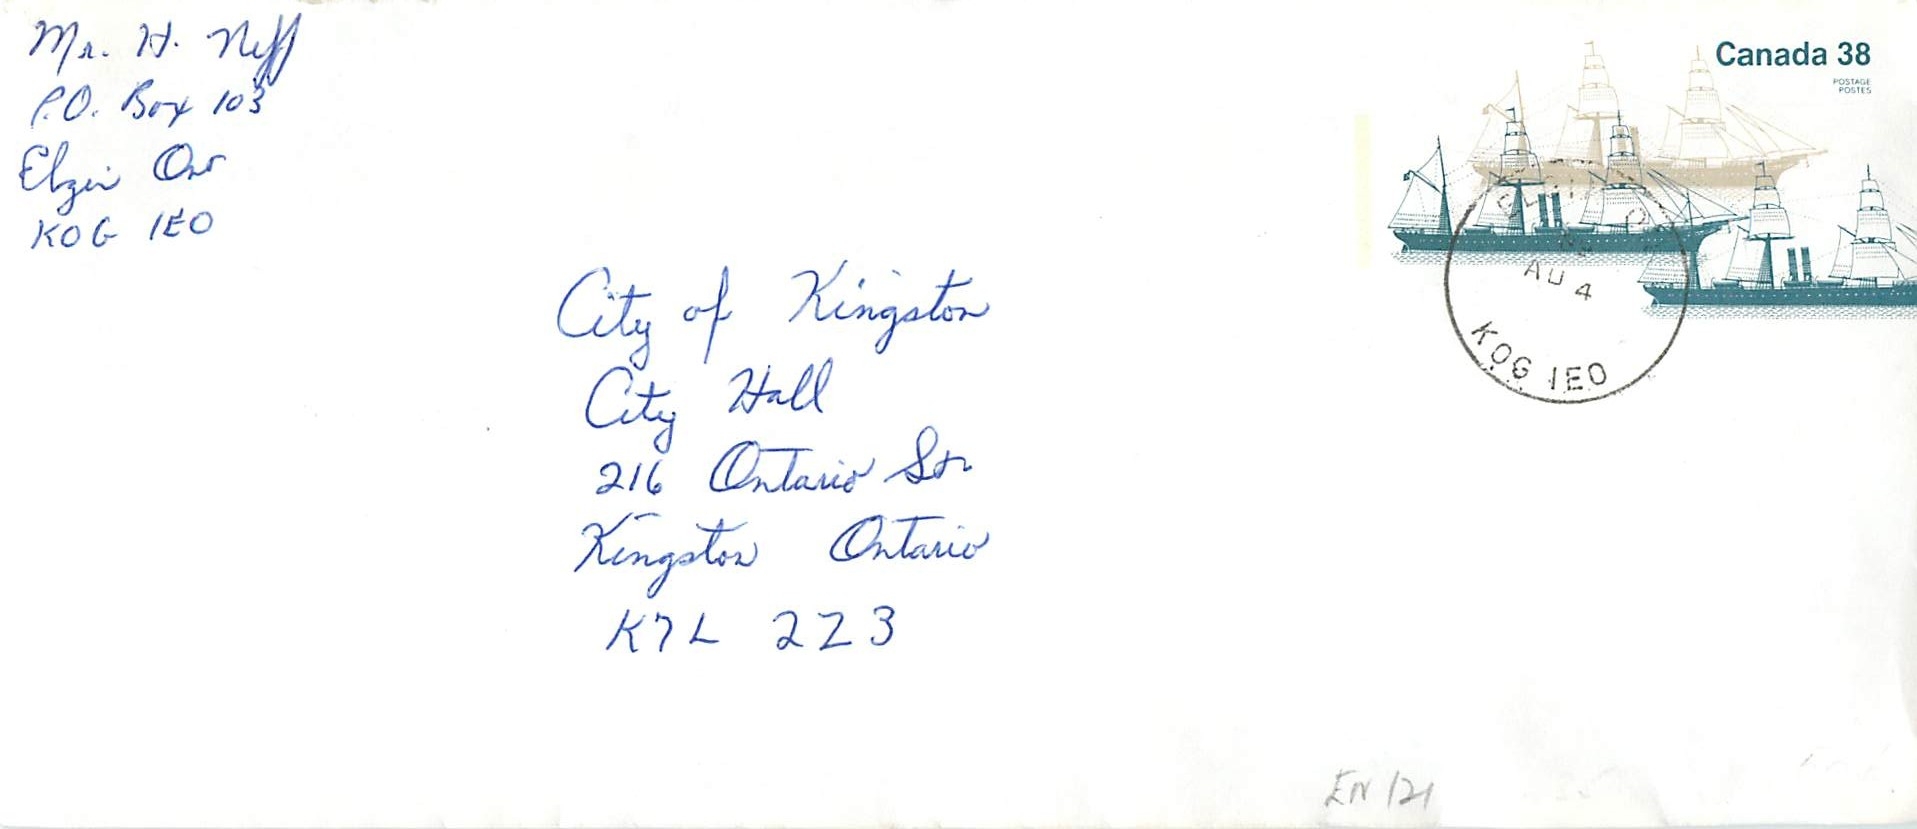 Mr. H. Neff
P.O. Box 103
Elgin Ont
K0G 1E0
Canada 38
POSTAGE
POSTES
AU 4
K0G 1E0
City of Kingston
City Hall
216 Ontario Str
Kingston Ontario
K7L 2Z3
EN 121